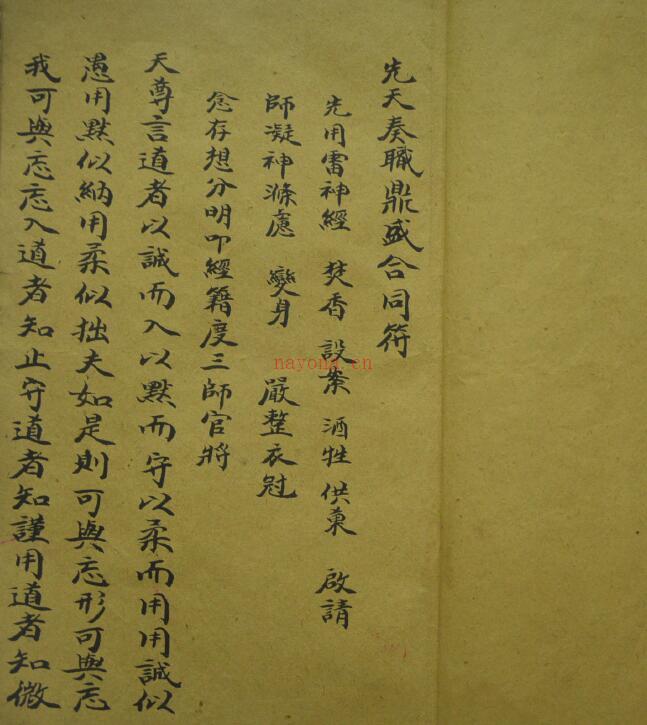 先天奏職鼎盛合同符
先用雷神經 焚香 設案 酒牲 供菓 啟請
師凝神滌慮 變身 嚴整衣冠
念存想分明叩經籍度三師官將
天尊言道者以誠而入以默而守以柔而用用誠似
愚用默似納用柔似拙夫如是則可與忘形可與忘
我可與忘忘入道者知止守道者知謹用道者知微
nayona.cn